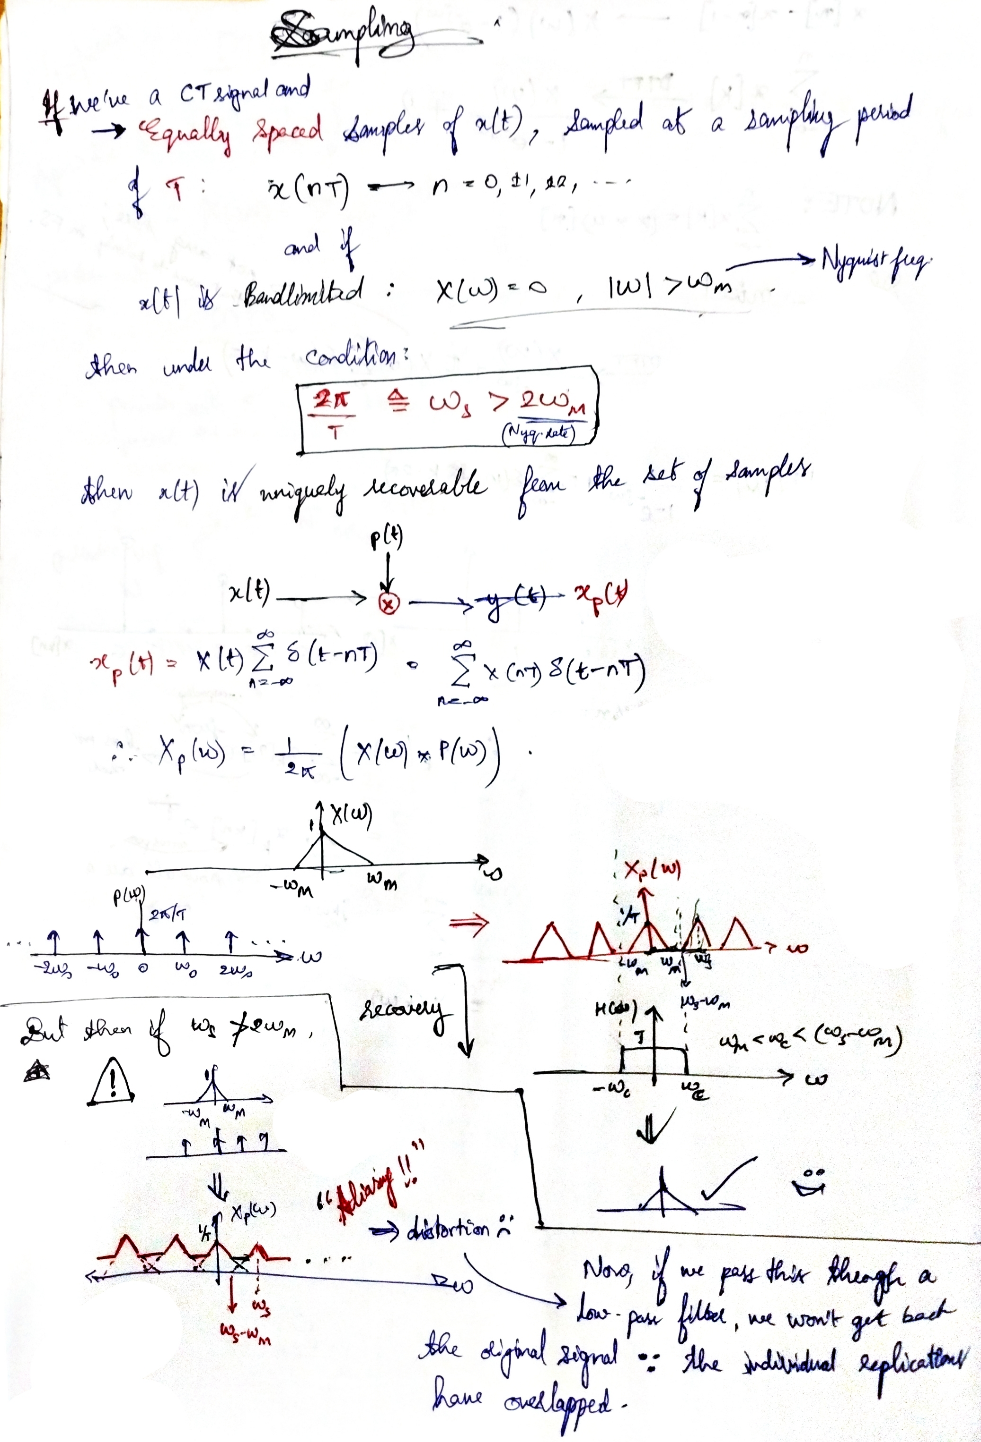 Sampling
If we've a CT signal and
→ Equally spaced samples of x(t), sampled at a sampling period
of T : x(nT) → n = 0, ±1, ±2, ....
and if
x(t) is Bandlimited : X(ω) = 0 , |ω| > ω_M . → Nyquist freq.
then under the condition:
2π/T ≜ ω_s > 2ω_M
(Nyq. rate)
then x(t) is uniquely recoverable from the set of samples
p(t)
x(t) → ⊗ → y(t) x_p(t)
x_p(t) = x(t) Σ_{n=-∞}^{∞} δ(t-nT) = Σ_{n=-∞}^{∞} x(nT) δ(t-nT)
∴ X_p(ω) = 1/2π (X(ω) * P(ω)) .
1 X(ω)
-ω_M ω_M ω
P(ω)
2π/T
... -2ω_s -ω_0 0 ω_0 2ω_0 .... ω
⇒
X_p(ω)
1/T
-ω_M ω_M ω_s ω
ω_s-ω_M
recovery
H(ω)
T
ω_M < ω_c < (ω_s-ω_M)
-ω_c ω_c ω
But then if ω_s ≯ 2ω_M ,
!
1
-ω_M ω_M
X_p(ω)
1/T
"Aliasing!!"
→ distortion
.... ω
ω_s
ω_s-ω_M
Now, if we pass this through a
low-pass filter, we won't get back
the original signal ∵ the individual replications
have overlapped.